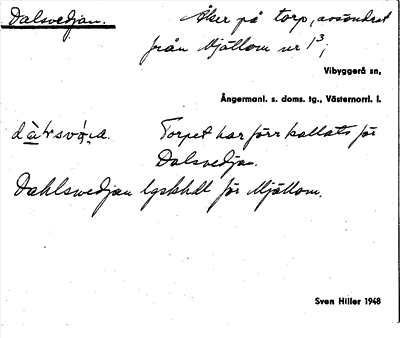 Dalsvedjan. Åker på torp, avsöndrat
från Mjällom nr 1³;
Vibyggerå sn,
Ångermanl. s. doms. tg., Västernorrl. l.
Torpet har förr kallats för
Dalsvedjan.
Dahlswedjan lgskkdt för Mjällom.
Sven Hiller 1948